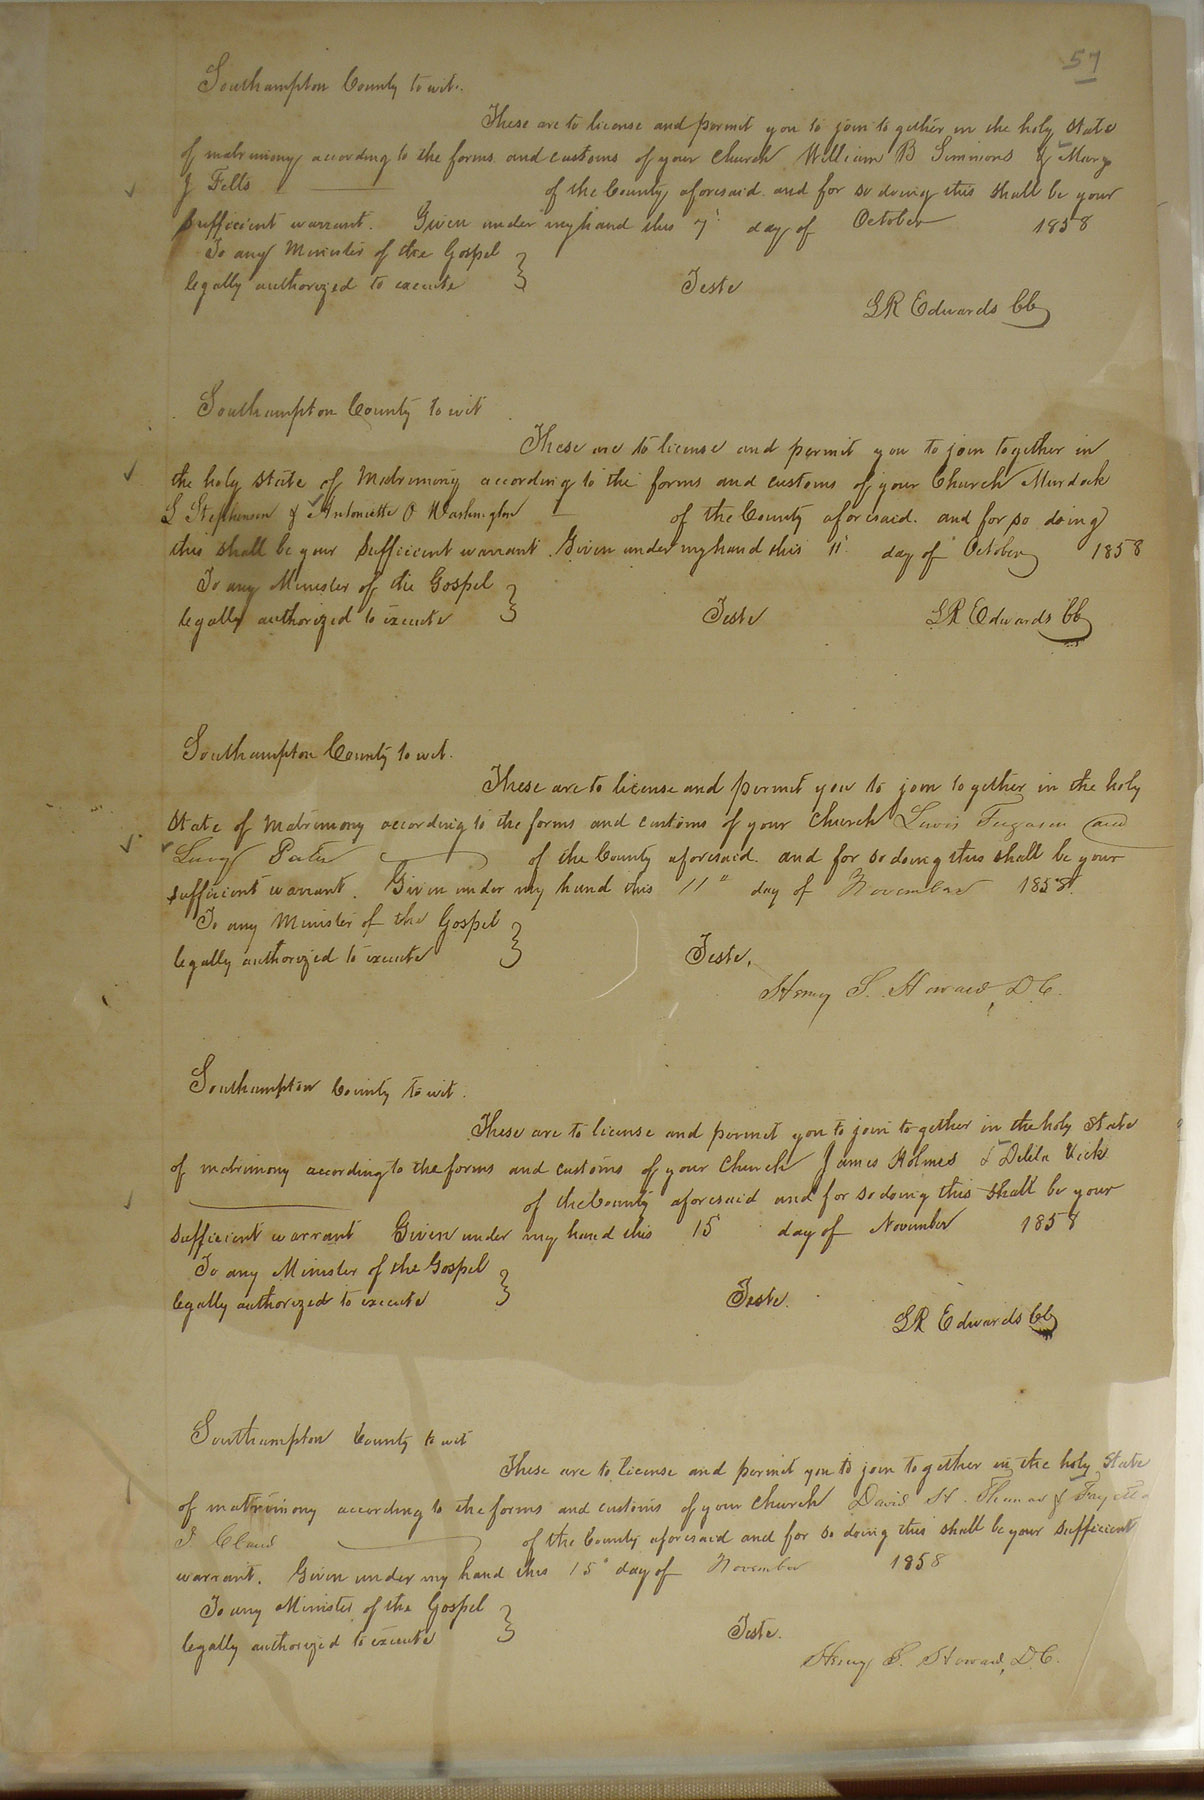 57
Southampton County to wit.
These are to license and permit you to join together in the holy state
of matrimony according to the forms and customs of your Church William B Simmons & Mary
J Fells of the County aforesaid. and for so doing this shall be your
sufficient warrant. Given under my hand this 7" day of October 1858
To any Minister of the Gospel
legally authorized to execute } Teste
LR Edwards CC
Southampton County to wit
These are to license and permit you to join together in
the holy state of Matrimony according to the forms and customs of your Church Murdock
L Stephenson & Antonette O Washington of the County aforesaid. and for so doing
this shall be your sufficient warrant. Given under my hand this 11" day of October 1858
To any Minister of the Gospel
legally authorized to execute } Teste LR Edwards CC
Southampton County to wit.
These are to license and permit you to join together in the holy
state of Matrimony according to the forms and customs of your Church Lewis Ferguson and
Lucy of the County aforesaid. and for so doing this shall be your
sufficient warrant. Given under my hand this 11" day of November 1858.
To any Minister of the Gospel
legally authorized to execute } Teste.
Henry S. Howard, D.C.
Southampton County to wit.
These are to license and permit you to join together in the holy state
of matrimony according to the forms and customs of your Church James Holmes & Delila Vick
of the County aforesaid and for so doing this shall be your
sufficient warrant Given under my hand this 15 day of November 1858
To any Minister of the Gospel
legally authorized to execute } Teste.
LR Edwards CC
Southampton County to wit
These are to license and permit you to join together in the holy state
of matrimony according to the forms and customs of your Church David H. Thomas &
J Claud of the County aforesaid and for so doing this shall be your sufficient
warrant. Given under my hand this 15" day of November 1858
To any Minister of the Gospel
legally authorized to execute } Teste.
Henry S. Howard, D.C.